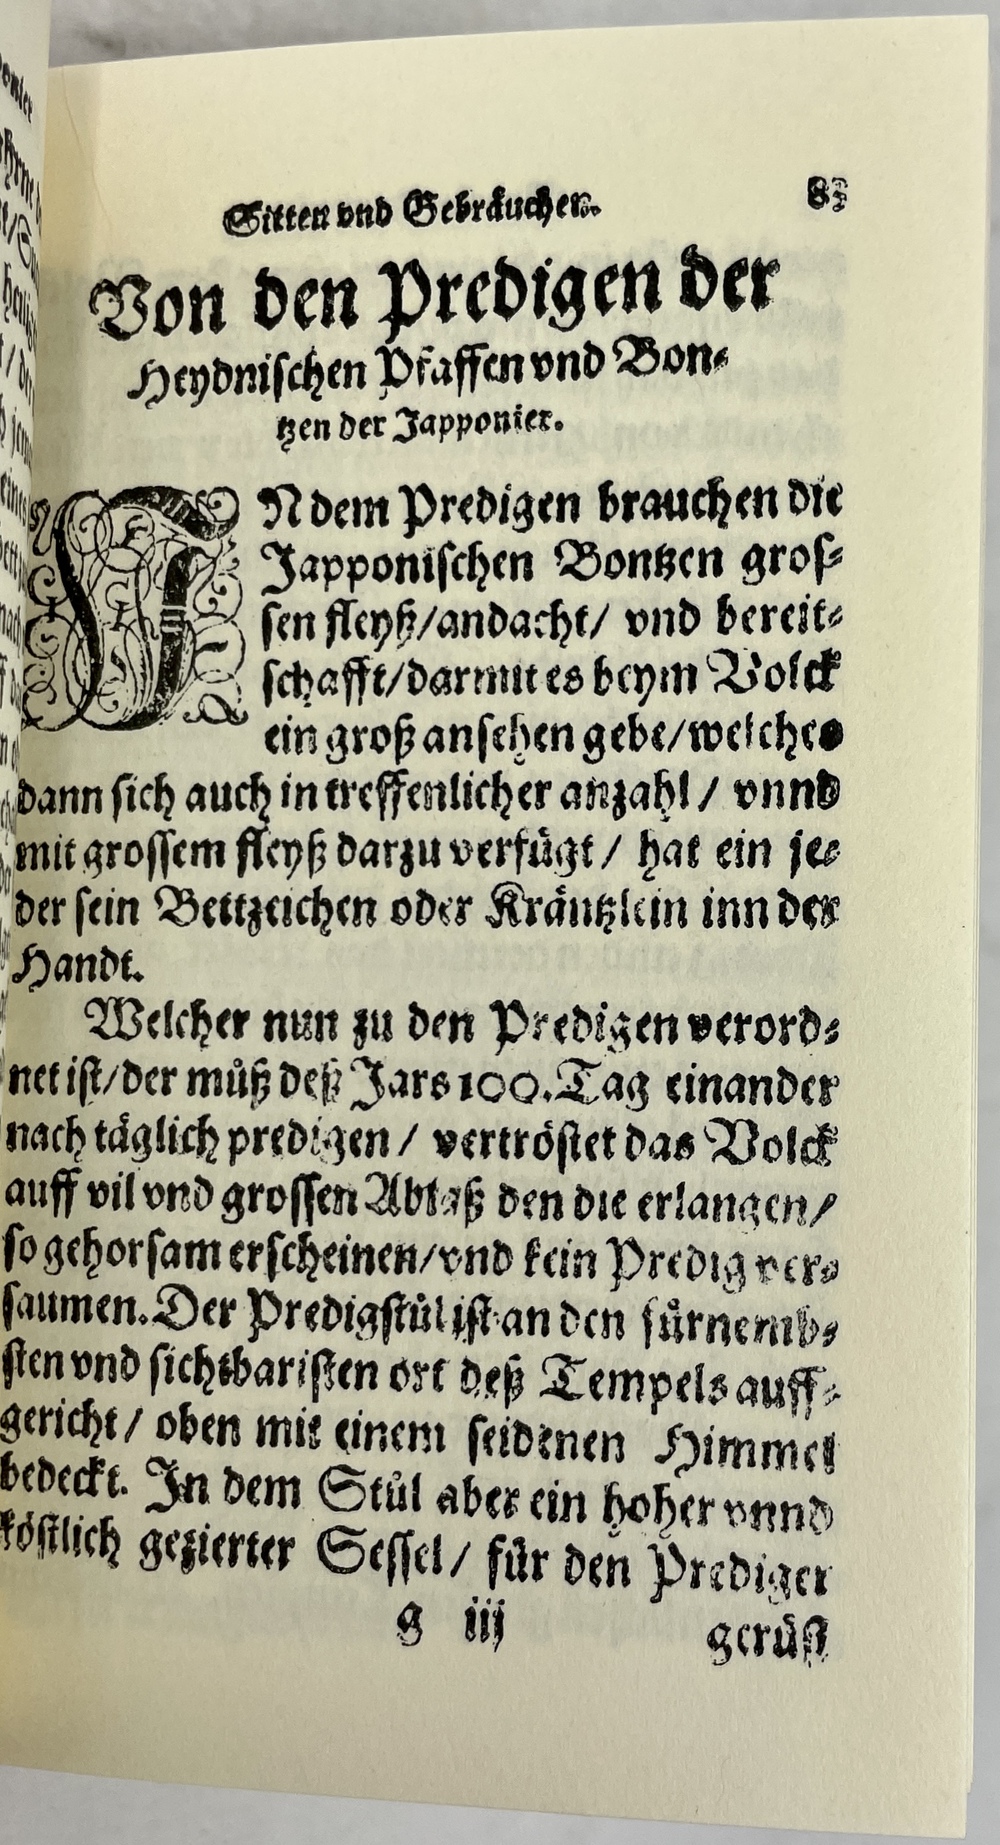 Sitten vnd Gebräuchen.
Von den Predigen der
Heydnischen Pfaffen vnd Bon⸗
tzen der Japponier.
IN dem Predigen brauchen die
Japponischen Bontzen gros⸗
sen fleyß/andacht/ vnd bereit⸗
schafft/darmit es beym Volck
ein groß ansehen gebe/welches
dann sich auch in treffenlicher anzahl / vnnd
mit grossem fleyß darzu verfügt / hat ein je⸗
der sein Bettzeichen oder Kräntzlein inn der
Handt.
Welcher nun zu den Predigen verord⸗
net ist/der můß deß Jars 100. Tag einander
nach täglich predigen / vertröstet das Volck
auff vil vnd grossen Ablaß den die erlangen/
so gehorsam erscheinen/vnd kein Predig ver⸗
saumen. Der Predigstůl ist an den fürnemb⸗
sten vnd sichtbaristen ort deß Tempels auff⸗
gericht / oben mit einem seidenen Himmel
bedeckt. In dem Stůl aber ein hoher vnnd
köstlich gezierter Sessel / für den Prediger
g iij
gerüst